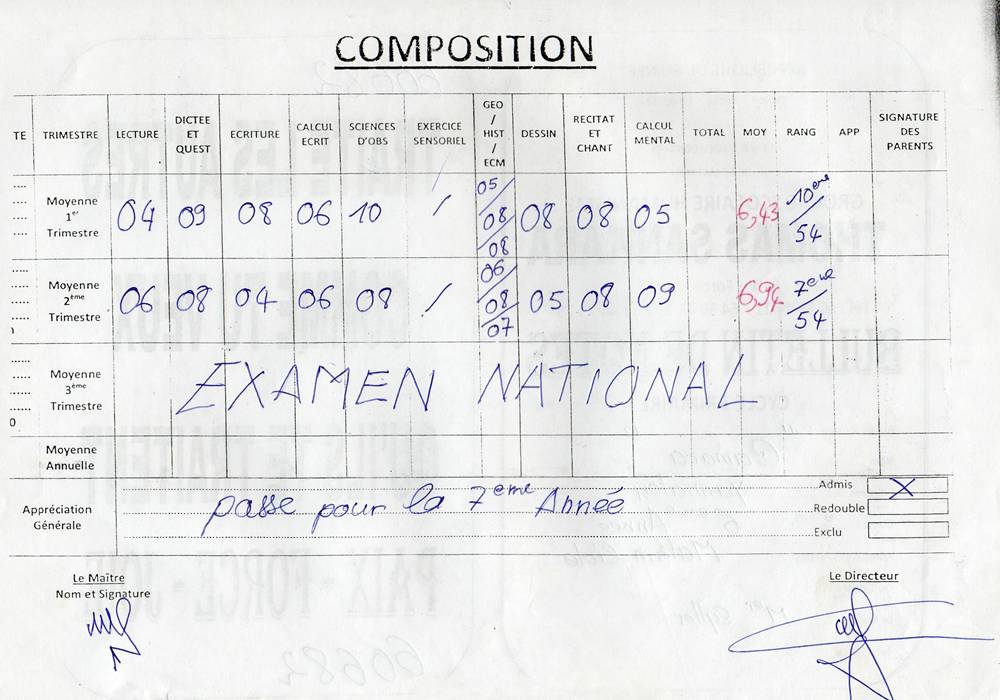 COMPOSITION
TE TRIMESTRE LECTURE DICTEE ET QUEST ECRITURE CALCUL ECRIT SCIENCES D'OBS EXERCICE SENSORIEL GEO / HIST / ECM DESSIN RECITAT ET CHANT CALCUL MENTAL TOTAL MOY RANG APP SIGNATURE DES PARENTS
Moyenne 1er Trimestre 04 09 08 06 10 / 05/08/08 08 08 05 6,43 10eme/54
Moyenne 2ème Trimestre 06 08 04 06 08 / 06/08/07 05 08 09 6,94 7eme/54
Moyenne 3ème Trimestre EXAMEN NATIONAL
Moyenne Annuelle
Appréciation Générale
Admis X
passe pour la 7eme Année
Redouble
Exclu
Le Maître
Nom et Signature
Le Directeur